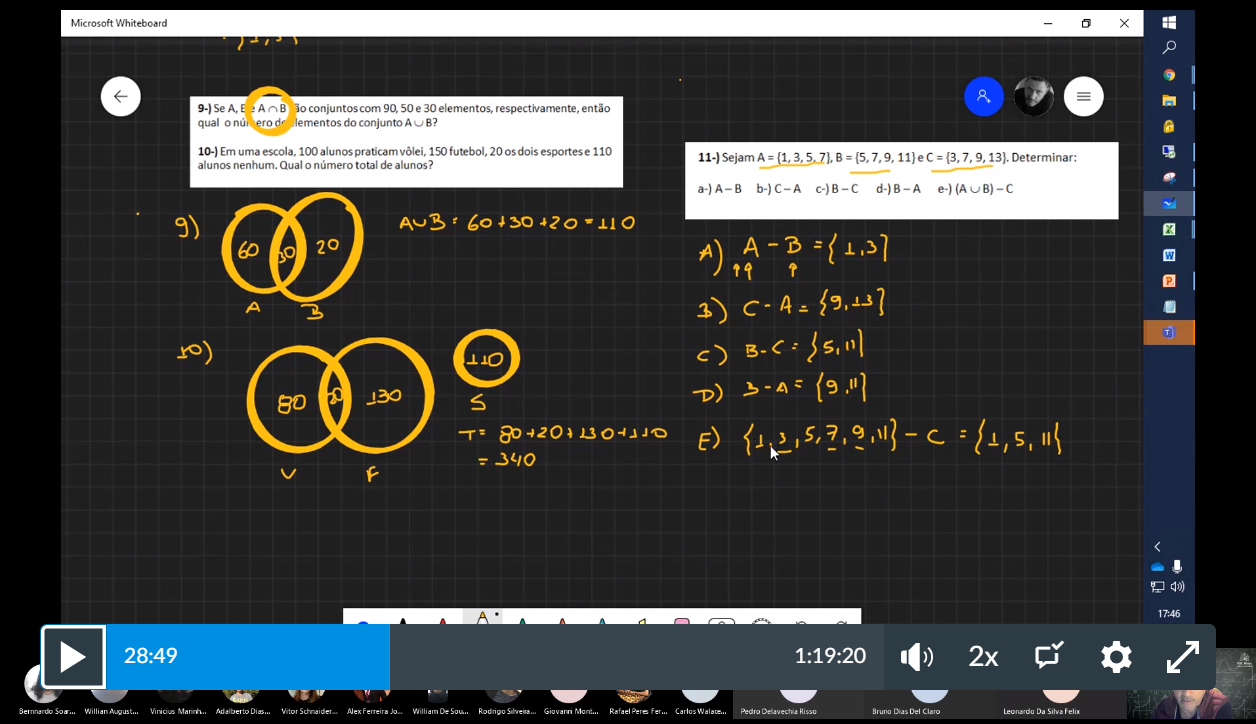 Microsoft Whiteboard
9-) Se A, B e A ∩ B são conjuntos com 90, 50 e 30 elementos, respectivamente, então
qual o número de elementos do conjunto A ∪ B?
10-) Em uma escola, 100 alunos praticam vôlei, 150 futebol, 20 os dois esportes e 110
alunos nenhum. Qual o número total de alunos?
9) 60 30 20 A∪B = 60+30+20 = 110
A B
10) 80 20 130 110
V F S
T = 80+20+130+110
= 340
11-) Sejam A = {1, 3, 5, 7}, B = {5, 7, 9, 11} e C = {3, 7, 9, 13}. Determinar:
a-) A – B b-) C – A c-) B – C d-) B – A e-) (A ∪ B) – C
A) A - B = {1,3}
B) C - A = {9,13}
C) B-C = {5,11}
D) B-A = {9,11}
E) {1,3,5,7,9,11} - C = {1,5,11}
17:46
28:49 1:19:20 2x
Bernnardo Soar... Willian August... Vinicius Marinh... Adalberto Dias... Vitor Schneider... Alex Ferreira Jo... William De Sou... Rodrigo Silveira... Giovanni Mont... Rafael Peres Fer... Carlos Walace... Pedro Delavechia Risso Bruno Dias Del Claro Leonardo Da Silva Felix